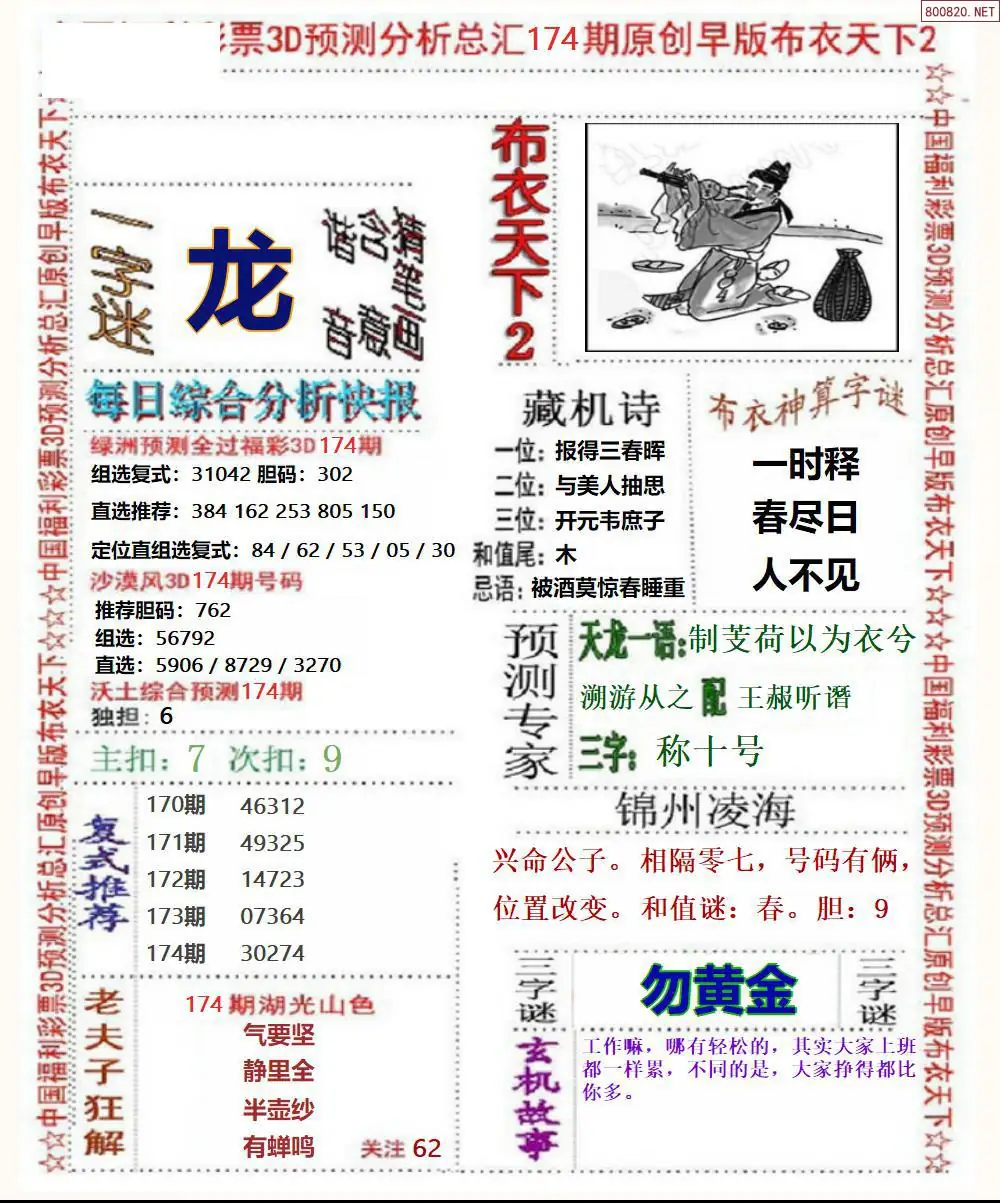 800820.NET
票3D预测分析总汇174期原创早版布衣天下2
☆☆中国福利彩票3D预测分析总汇原创早版布衣天下☆☆☆中国福利彩票3D预测分析总汇原创早版布衣天下☆☆
一字迷
龙
每日综合分析快报
绿洲预测全过福彩3D174期
组选复式：31042 胆码：302
直选推荐：384 162 253 805 150
定位直组选复式：84 / 62 / 53 / 05 / 30
沙漠风3D174期号码
推荐胆码：762
组选：56792
直选：5906 / 8729 / 3270
沃土综合预测174期
独担：6
主扣：7 次扣：9
复式推荐
170期 46312
171期 49325
172期 14723
173期 07364
174期 30274
老夫子狂解
174期湖光山色
气要坚
静里全
半壶纱
有蝉鸣
关注 62
布衣天下2
藏机诗
一位：报得三春晖
二位：与美人抽思
三位：开元韦庶子
和值尾：木
忌语：被酒莫惊春睡重
布衣神算字谜
一时释
春尽日
人不见
预测专家
天龙一语：制芰荷以为衣兮
溯游从之 配 王赧听谮
三字：称十号
锦州凌海
兴命公子。相隔零七，号码有俩，
位置改变。和值谜：春。胆：9
三字谜
勿黄金
三字谜
玄机故事
工作嘛，哪有轻松的，其实大家上班
都一样累，不同的是，大家挣得都比
你多。
☆☆中国福利彩票3D预测分析总汇原创早版布衣天下☆☆☆中国福利彩票3D预测分析总汇原创早版布衣天下☆☆